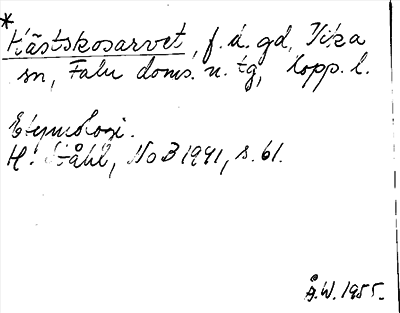 *Hästskosarvet, f.d. gd, Vika
sn, Falu doms. n. tg, Kopp. l.
Etymologi.
H. Ståhl, NoB 1941, s. 61.
Å.W. 1955.